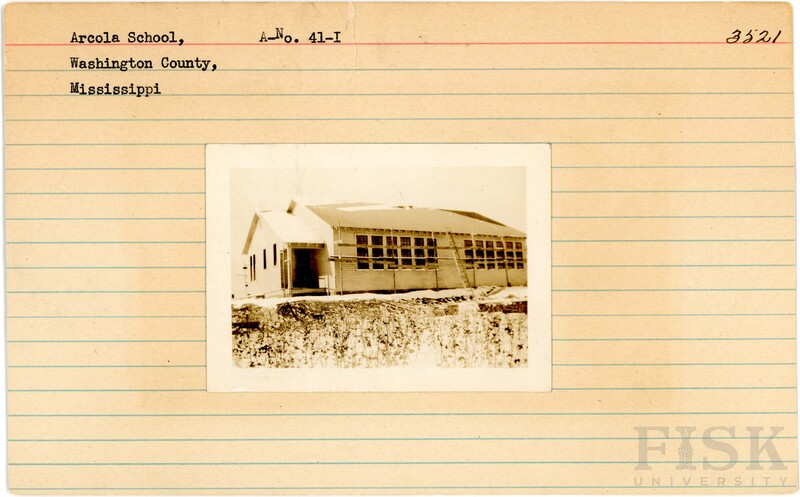 Arcola School, A-No. 41-I 3521
Washington County,
Mississippi
FISK
UNIVERSITY